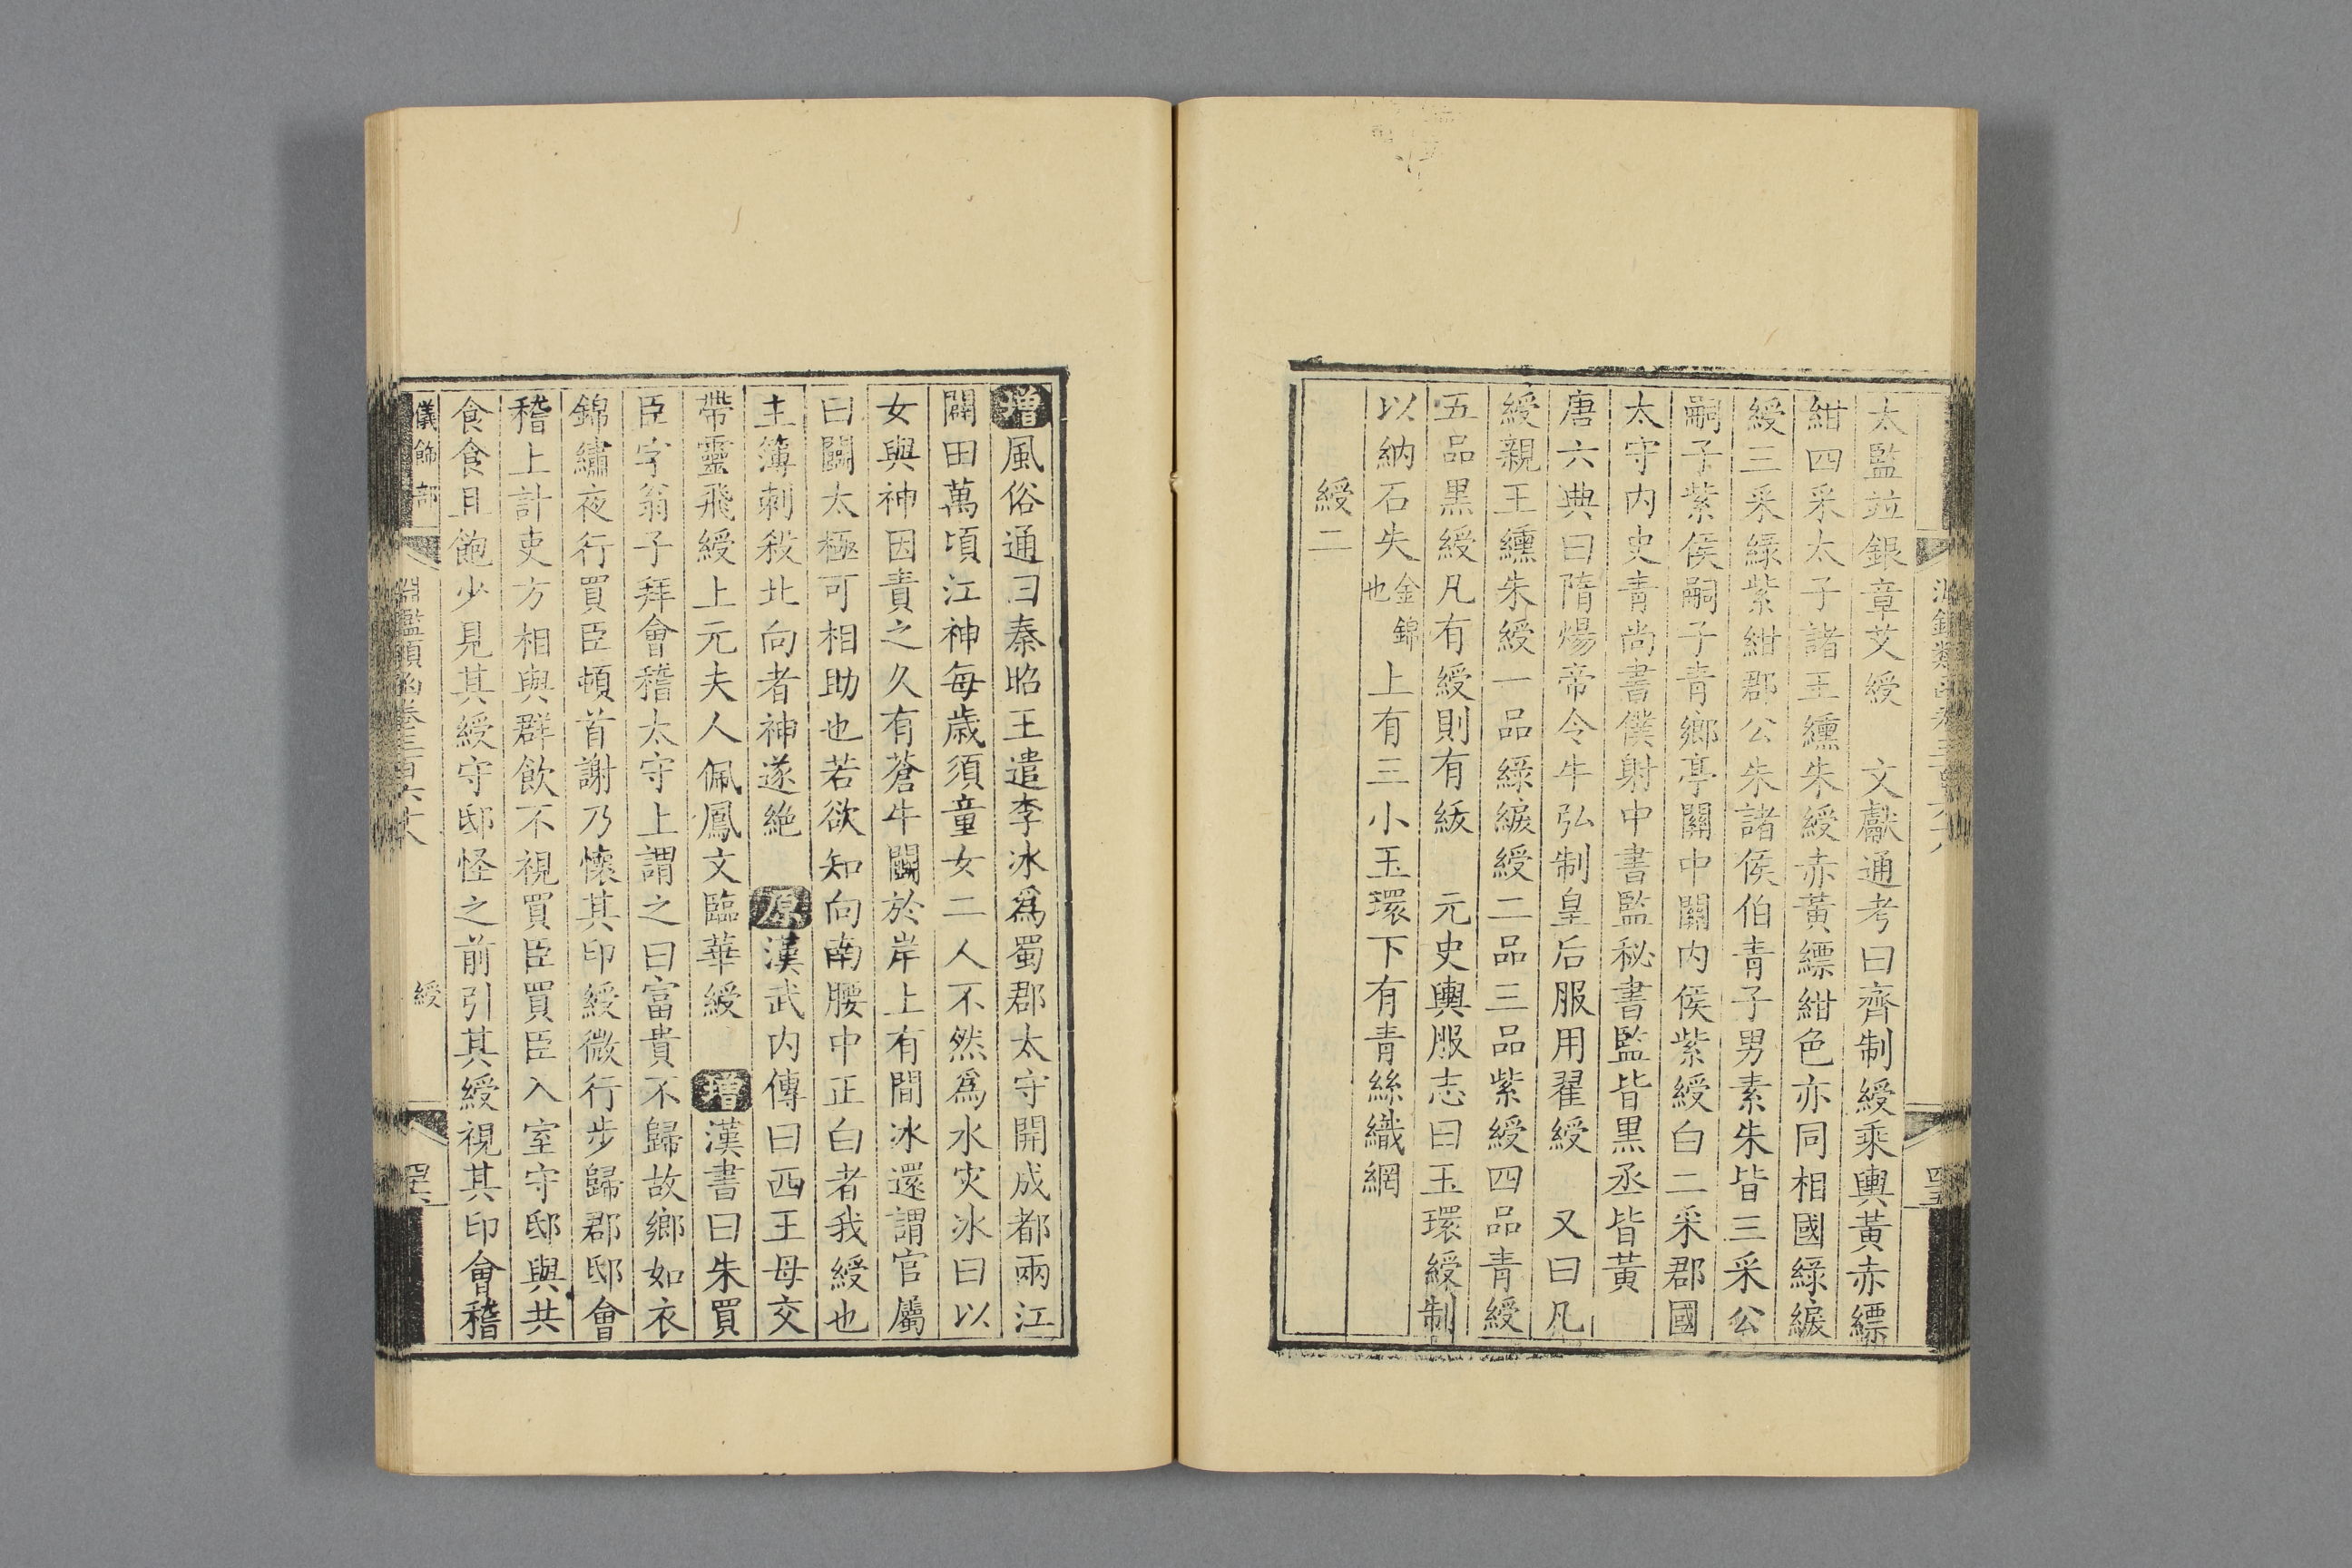 太監竝銀章艾綬　文獻通考曰齊制綬乘輿黃赤縹
紺四采太子諸王纁朱綬赤黃縹紺色亦同相國綠綟
綬三采綠紫紺郡公朱諸侯伯青子男素朱皆三采公
嗣子紫侯嗣子青鄉亭關中關内侯紫綬白二采郡國
太守内史青尚書僕射中書監秘書監皆黑丞皆黃
唐六典曰隋煬帝令牛弘制皇后服用翟綬　又曰凡
綬親王纁朱綬一品綠綟綬二品三品紫綬四品青綬
五品黑綬凡有綬則有紱　元史輿服志曰玉環綬制
以納石失金錦也上有三小玉環下有青絲織網
綬二
增風俗通曰秦昭王遣李冰爲蜀郡太守開成都兩江
闢田萬頃江神每歲須童女二人不然爲水灾冰曰以
女與神因責之久有蒼牛鬬於岸上有間冰還謂官屬
曰鬬太極可相助也若欲知向南腰中正白者我綬也
主簿刺殺北向者神遂絶　原漢武内傳曰西王母交
帶靈飛綬上元夫人佩鳳文臨華綬　增漢書曰朱買
臣字翁子拜會稽太守上謂之曰富貴不歸故鄉如衣
錦繡夜行買臣頓首謝乃懷其印綬微行步歸郡邸會
稽上計吏方相與群飲不視買臣買臣入室守邸與共
食食且飽少見其綬守邸怪之前引其綬視其印會稽
儀飾部　淵鑑類函卷三百六十八　綬